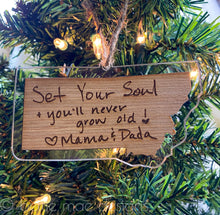 Set Your Soul
+ you'll never
grow old.
♡ Mama & Dada